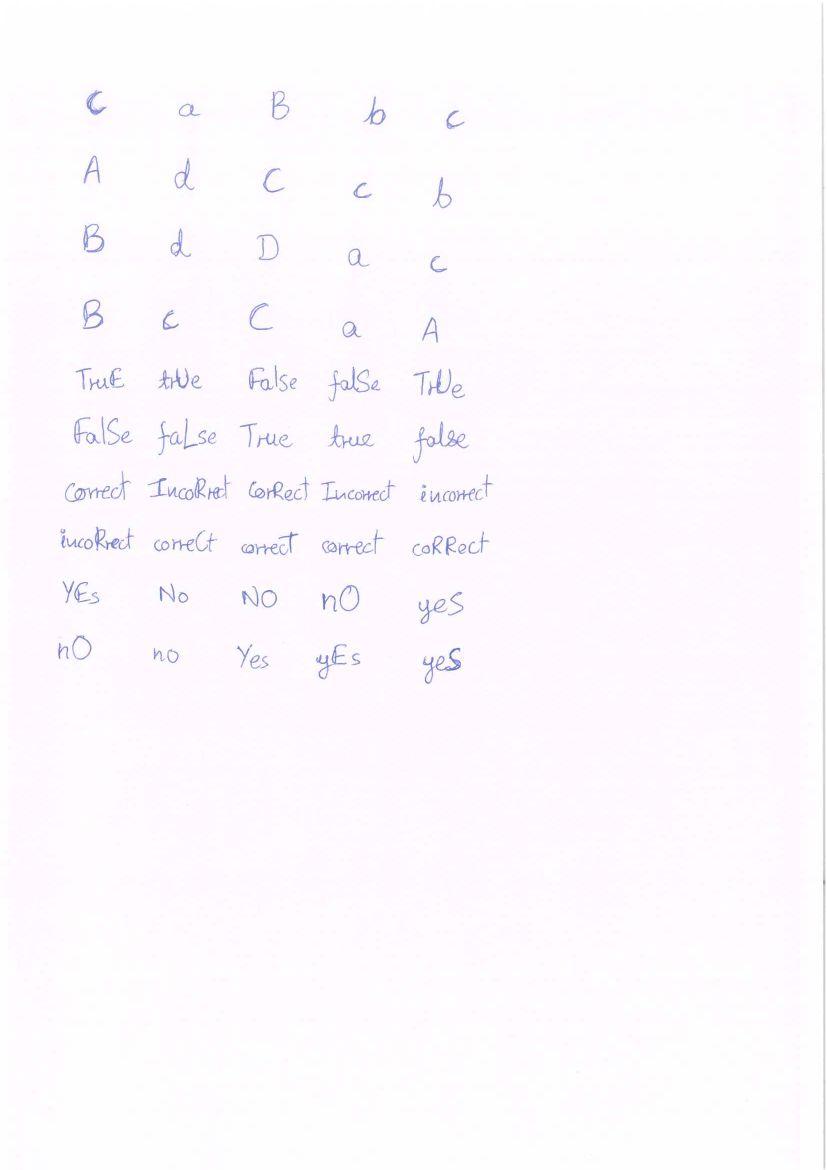 C a B b c
A d C c b
B d D a c
B c C a A
TruE trUe False falSe TrUe
FalSe faLse True true false
Correct IncoRrect CorRect Incorrect incorrect
incoRrect correCt correcT correct coRRect
YEs No NO nO yeS
nO no Yes yEs yeS